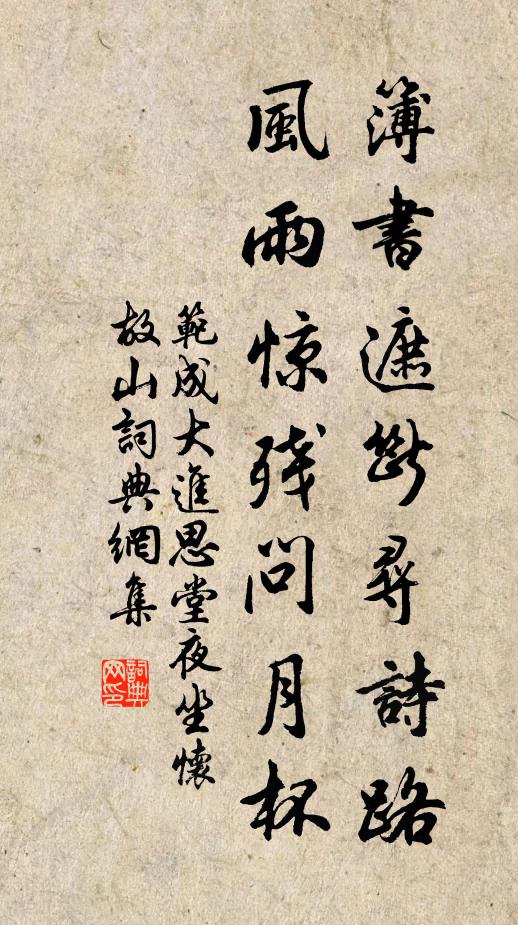 簿書遮斷尋詩路
風雨惊残問月杯
範成大進思堂夜坐懷
故山詞典網集
詞典网印